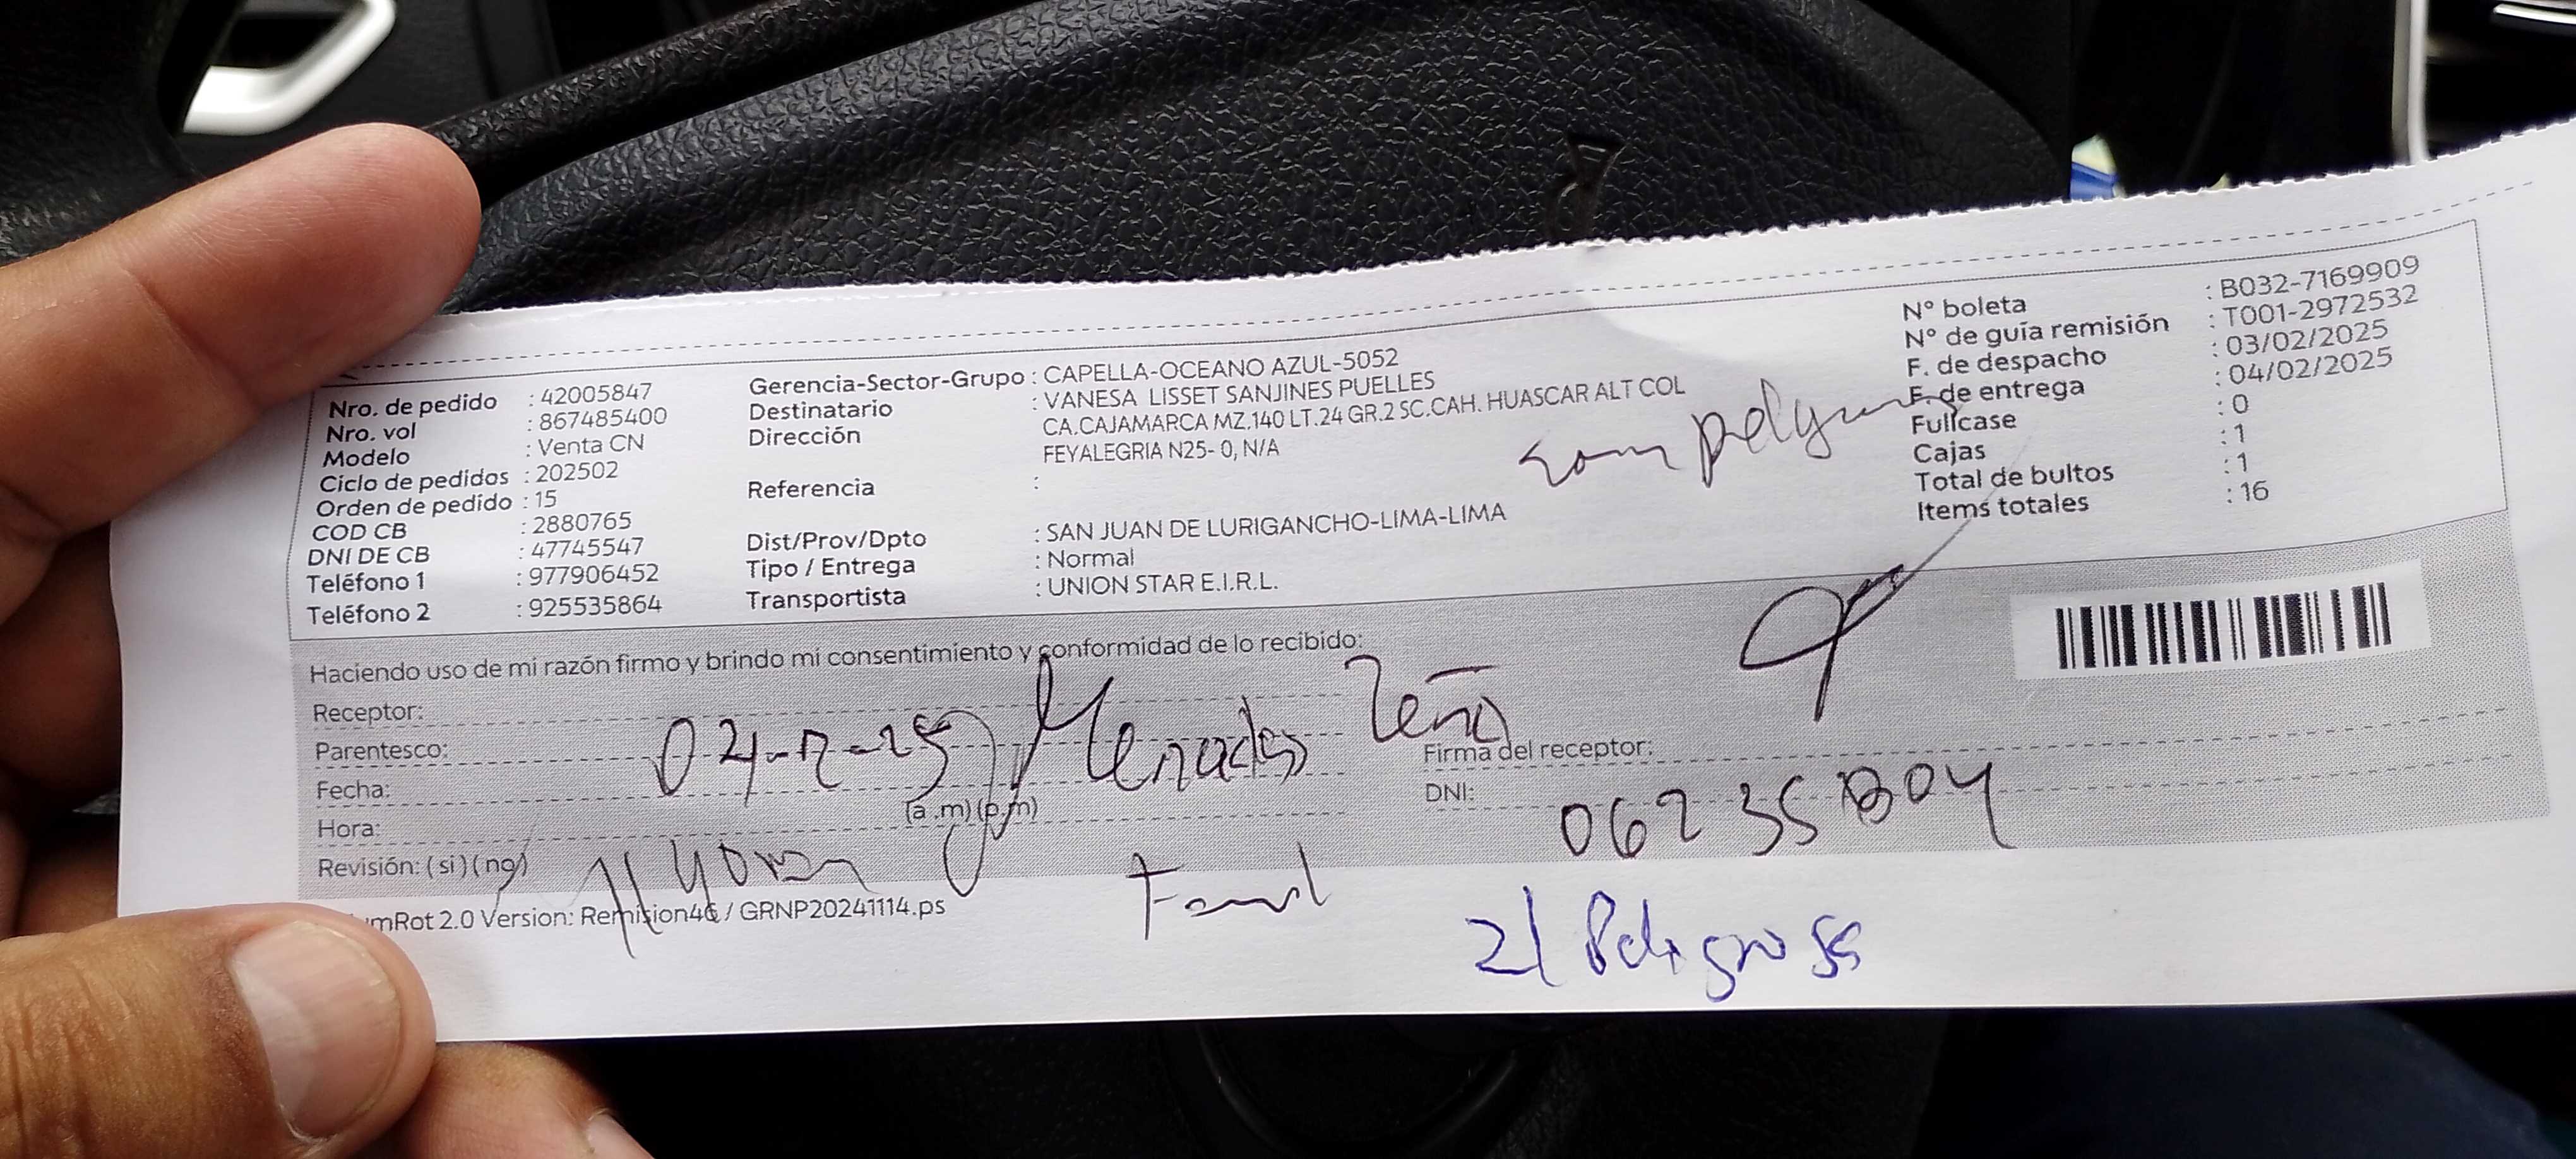 Nro. de pedido : 42005847
Nro. vol : 867485400
Modelo : Venta CN
Ciclo de pedidos : 202502
Orden de pedido : 15
COD CB : 2880765
DNI DE CB : 47745547
Teléfono 1 : 977906452
Teléfono 2 : 925535864
Gerencia-Sector-Grupo : CAPELLA-OCEANO AZUL-5052
Destinatario : VANESA LISSET SANJINES PUELLES
Dirección CA.CAJAMARCA MZ.140 LT.24 GR.2 SC.CAH. HUASCAR ALT COL
FEYALEGRIA N25- 0, N/A
Referencia :
Dist/Prov/Dpto : SAN JUAN DE LURIGANCHO-LIMA-LIMA
Tipo / Entrega : Normal
Transportista : UNION STAR E.I.R.L.
N° boleta : B032-7169909
N° de guía remisión : T001-2972532
F. de despacho : 03/02/2025
F. de entrega : 04/02/2025
Fullcase : 0
Cajas : 1
Total de bultos : 1
Items totales : 16
Haciendo uso de mi razón firmo y brindo mi consentimiento y conformidad de lo recibido:
Receptor:
Parentesco:
Fecha:
Hora: (a.m) (p.m)
Revisión: (si) (no)
Firma del receptor:
DNI:
mRot 2.0 Version: Remision4G / GRNP20241114.ps
2/ Peligross